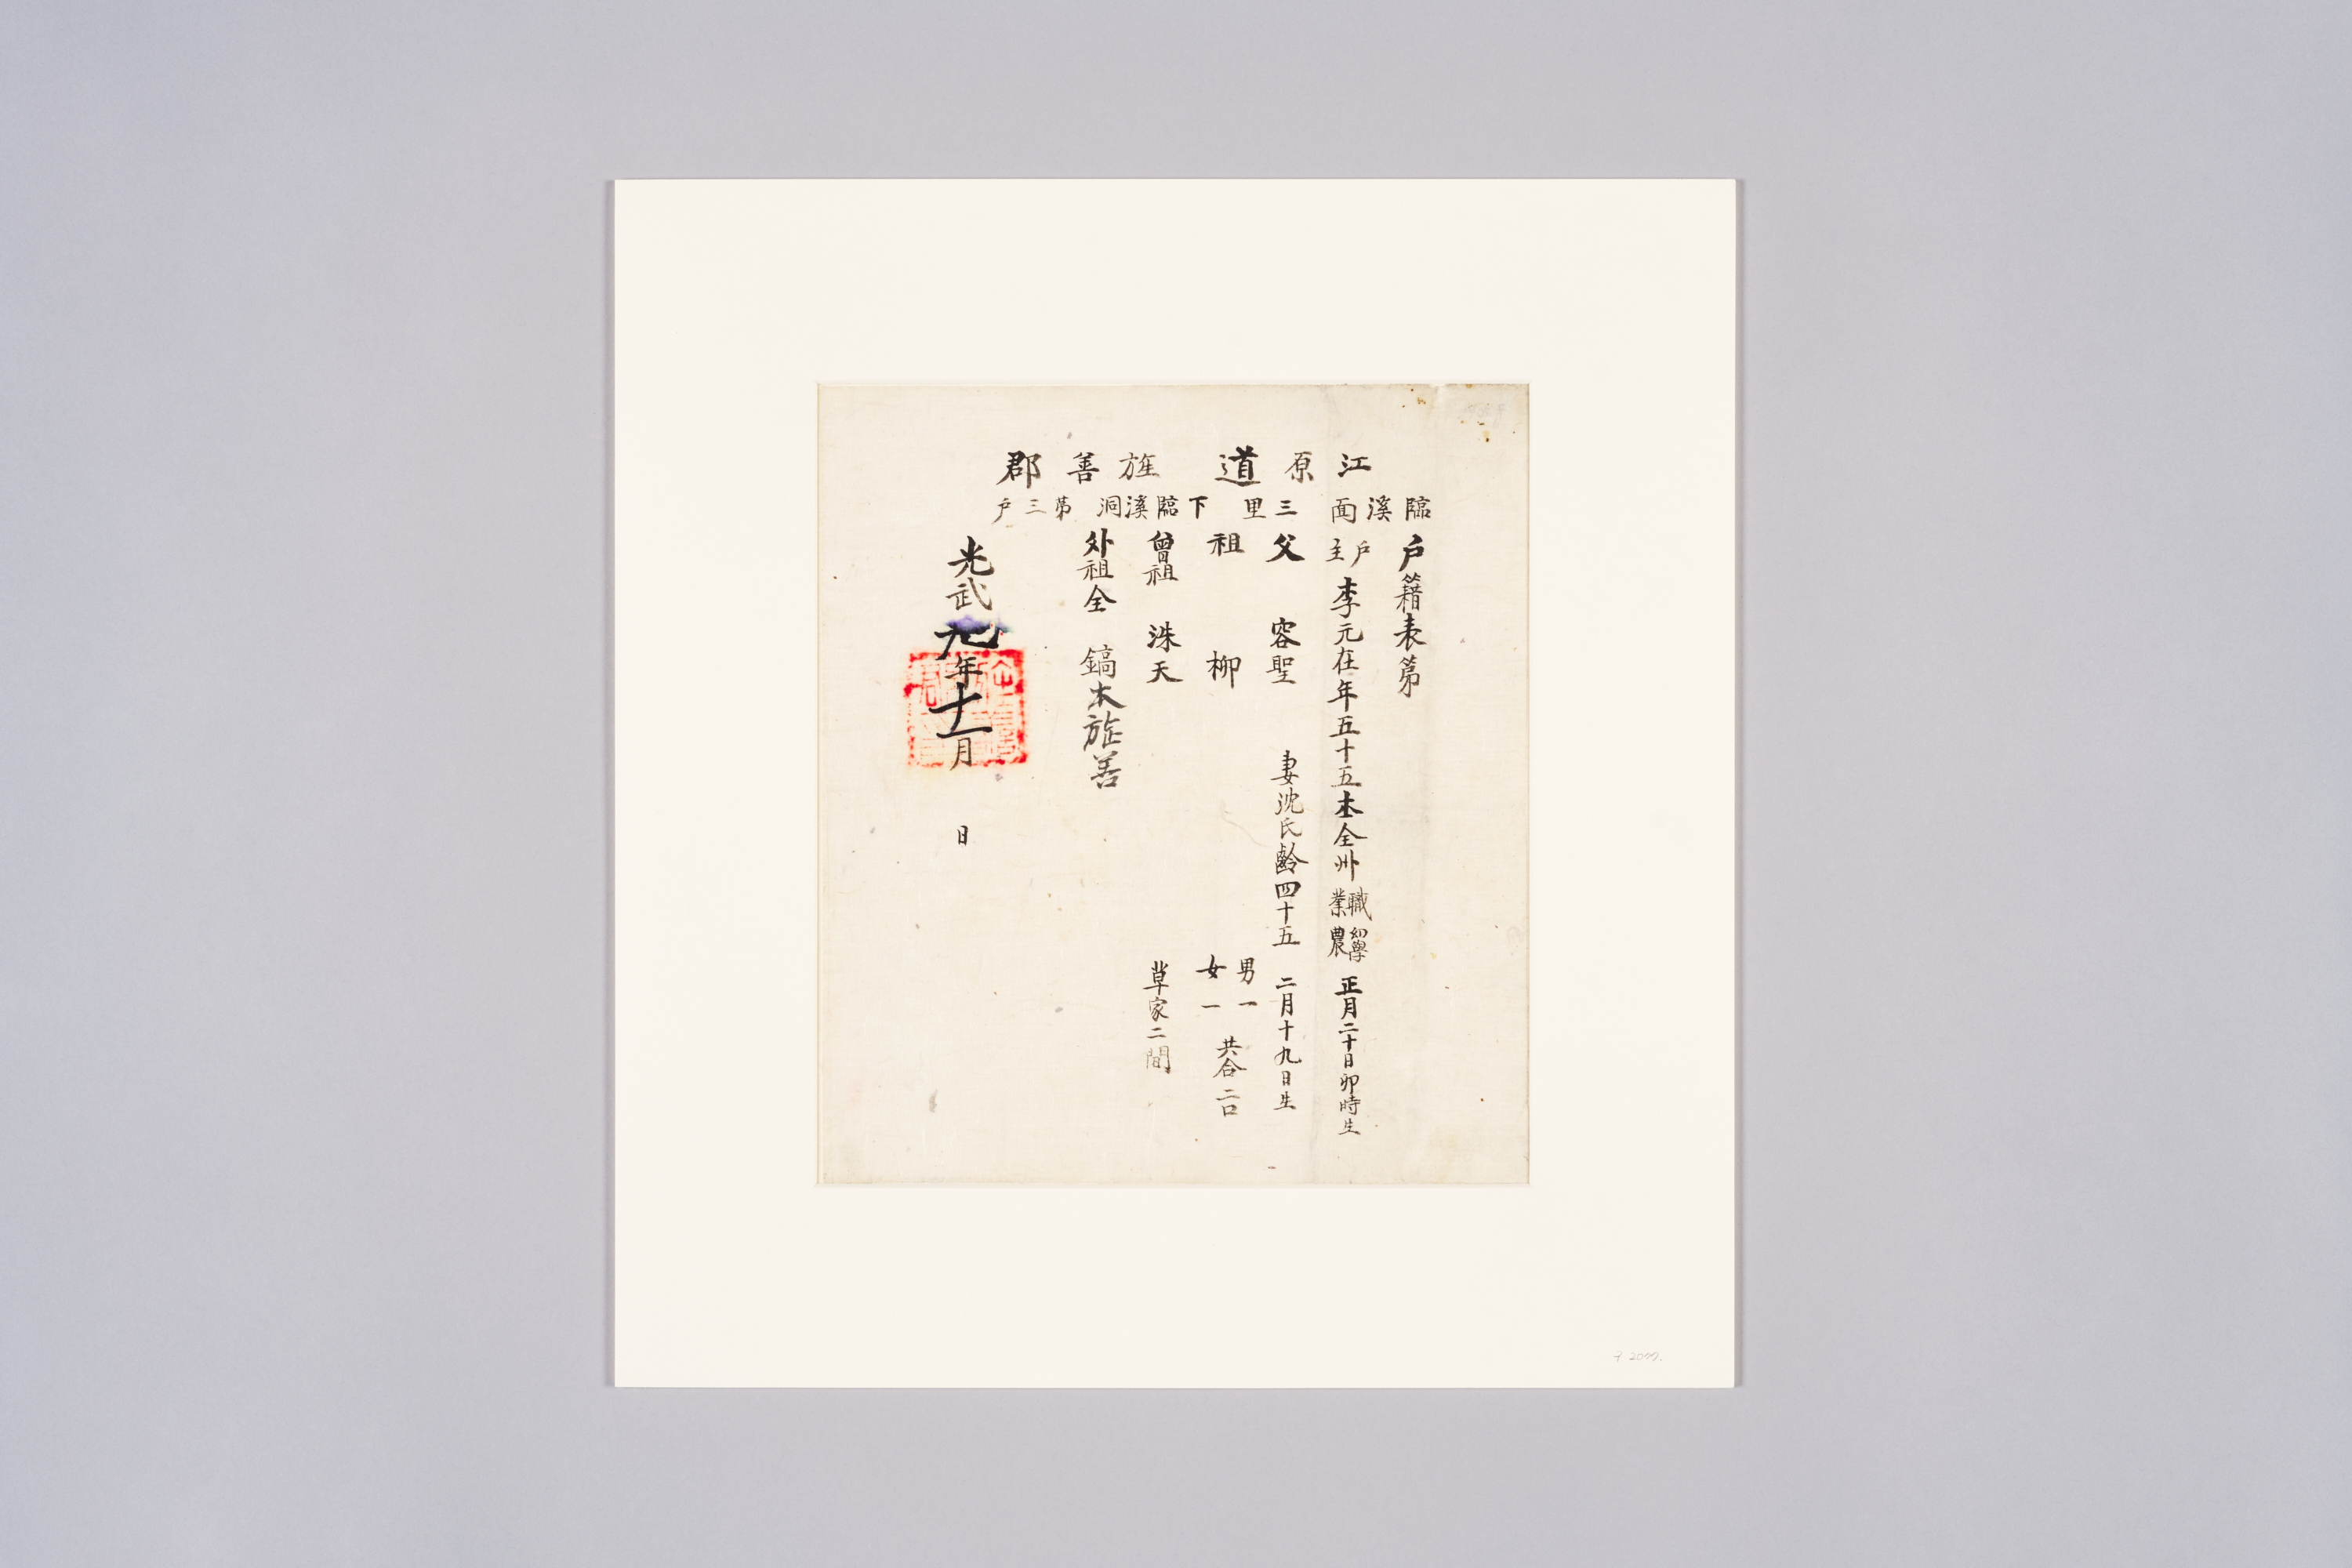 江原道 旌善郡
臨溪面 三里 下臨溪洞 第三戶
戶籍表第
戶主 李元在年五十五本全州 職 幼學 業 農 正月二十日卯時生
父 容聖 妻沈氏齡四十五 二月十九日生
祖 柳 男一 女一 共合二口
曾祖 洙天 草家二間
外祖全 鎬本旌善
光武九年十一月 日